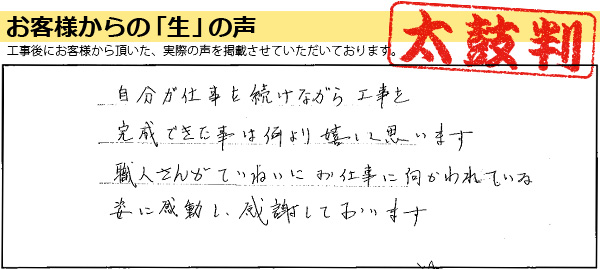 お客様からの「生」の声
太鼓判
工事後にお客様から頂いた、実際の声を掲載させていただいております。
自分が仕事を続けながら工事を
完成できた事は何より嬉しく思います
職人さんがていねいにお仕事に向かわれている
姿に感動し、感謝しております